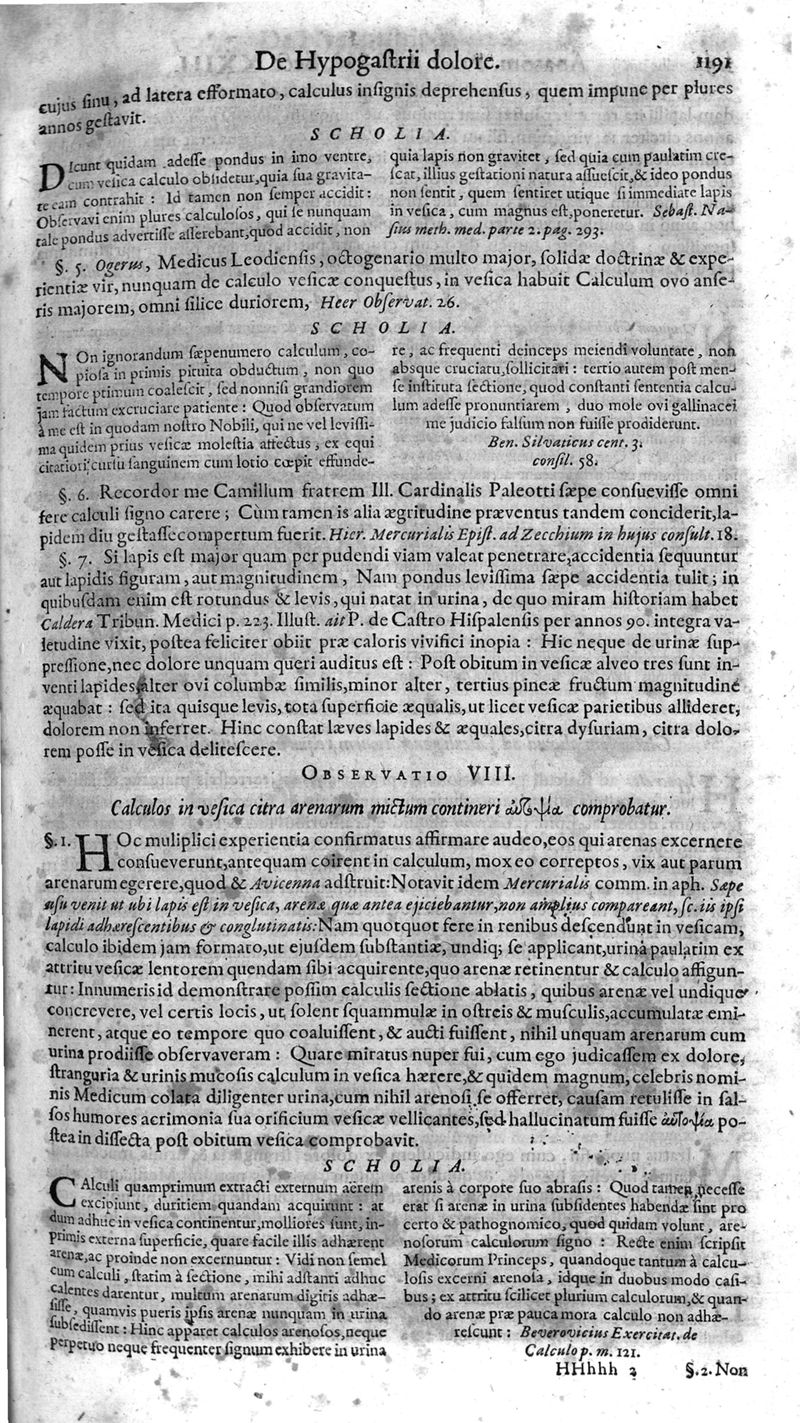 De Hypogaſtrii dolore. 1191
cujus ſinu, ad latera efformato, calculus inſignis deprehenſus, quem impune per plures
annos geſtavit.
SCHOLIA.
DIcunt quidam adeſſe pondus in imo ventre,
cum veſica calculo obſidetur, quia ſua gravita-
te eam contrahit: Id tamen non ſemper accidit:
Obſervavi enim plures calculoſos, qui ſe nunquam
tale pondus advertiſſe aſſerebant, quod accidit, non
quia lapis non gravitet, ſed quia cum paulatim cre-
ſcat, illius geſtationi natura aſſueſcit, & ideo pondus
non ſentit, quem ſentiret utique ſi immediate lapis
in veſica, cum magnus eſt, poneretur. Sebaſt. Na-
ſius meth. med. parte 2. pag. 293.
§. 5. Ogerus, Medicus Leodienſis, octogenario multo major, ſolidæ doctrinæ & expe-
rientiæ vir, nunquam de calculo veſicæ conqueſtus, in veſica habuit Calculum ovo anſe-
ris majorem, omni ſilice duriorem, Heer Obſervat. 26.
SCHOLIA.
NOn ignorandum ſæpenumero calculum, co-
pioſa in primis pituita obductum, non quo
tempore primum coaleſcit, ſed nonniſi grandiorem
jam factum excruciare patiente: Quod obſervatum
à me eſt in quodam noſtro Nobili, qui ne vel leviſſi-
ma quidem prius veſicæ moleſtia affectus, ex equi
citatiori curſu ſanguinem cum lotio cœpit effunde-
re, ac frequenti deinceps meiendi voluntate, non
absque cruciatu, ſollicitari: tertio autem poſt men-
ſe inſtituta ſectione, quod conſtanti ſententia calcu-
lum adeſſe pronuntiarem, duo mole ovi gallinacei
me judicio falſum non fuiſſe prodiderunt.
Ben. Silvaticus cent. 3.
conſil. 58.
§. 6. Recordor me Camillum fratrem Ill. Cardinalis Paleotti ſæpe conſueviſſe omni
fere calculi ſigno carere; Cùm tamen is alia ægritudine præventus tandem conciderit, la-
pidem diu geſtaſſe compertum fuerit. Hier. Mercurialis Epiſt. ad Zecchium in hujus conſult. 18.
§. 7. Si lapis eſt major quam per pudendi viam valeat penetrare, accidentia ſequuntur
aut lapidis figuram, aut magnitudinem, Nam pondus leviſſima ſæpe accidentia tulit; in
quibuſdam enim eſt rotundus & levis, qui natat in urina, de quo miram hiſtoriam habet
Caldera Tribun. Medici p. 223. Illuſt. ait P. de Caſtro Hiſpalenſis per annos 90. integra va-
letudine vixit, poſtea feliciter obiit præ caloris vivifici inopia: Hic neque de urinæ ſup-
preſſione, nec dolore unquam queri auditus eſt: Poſt obitum in veſicæ alveo tres ſunt in-
venti lapides, alter ovi columbæ ſimilis, minor alter, tertius pineæ fructum magnitudine
æquabat: ſed ita quisque levis, tota ſuperficie æqualis, ut licet veſicæ parietibus allideret,
dolorem non inferret. Hinc conſtat læves lapides & æquales, citra dyſuriam, citra dolo-
rem poſſe in veſica deliteſcere.
OBSERVATIO VIII.
Calculos in veſica citra arenarum mictum contineri αὐτοψία comprobatur.
§. 1. HOc muliplici experientia confirmatus affirmare audeo, eos qui arenas excernere
conſueverunt, antequam coirent in calculum, mox eo correptos, vix aut parum
arenarum egerere, quod & Avicenna adſtruit: Notavit idem Mercurialis comm. in aph. Sæpe
uſu venit ut ubi lapis eſt in veſica, arenæ quæ antea ejiciebantur, non amplius compareant, ſc. iis ipſi
lapidi adhæreſcentibus & conglutinatis: Nam quotquot fere in renibus deſcendunt in veſicam,
calculo ibidem jam formato, ut ejuſdem ſubſtantiæ, undiq; ſe applicant, urina paulatim ex
attritu veſicæ lentorem quendam ſibi acquirente, quo arenæ retinentur & calculo affigun-
tur: Innumeris id demonſtrare poſſim calculis ſectione ablatis, quibus arenæ vel undique
concrevere, vel certis locis, ut ſolent ſquammulæ in oſtreis & muſculis, accumulatæ emi-
nerent, atque eo tempore quo coaluiſſent, & aucti fuiſſent, nihil unquam arenarum cum
urina prodiiſſe obſervaveram: Quare miratus nuper fui, cum ego judicaſſem ex dolore,
ſtranguria & urinis mucoſis calculum in veſica hærere, & quidem magnum, celebris nomi-
nis Medicum colata diligenter urina, cum nihil arenoſi ſe offerret, cauſam retuliſſe in ſal-
ſos humores acrimonia ſua orificium veſicæ vellicantes, ſed hallucinatum fuiſſe αὐτοψία po-
ſtea in diſſecta poſt obitum veſica comprobavit.
SCHOLIA.
CAlculi quamprimum extracti externum aërem
excipiunt, duritiem quandam acquirunt: at
dum adhuc in veſica continentur, molliores ſunt, in-
primis externa ſuperficie, quare facile illis adhærent
arenæ, ac proinde non excernuntur: Vidi non ſemel
cum calculi, ſtatim à ſectione, mihi adſtanti adhuc
calentes darentur, multum arenarum digitis adhæ-
ſiſſe, quamvis pueris ipſis arenæ nunquam in urina
ſubſediſſent: Hinc apparet calculos arenoſos, neque
perpetuo neque frequenter ſignum exhibere in urina
arenis à corpore ſuo abraſis: Quod tamen neceſſe
erat ſi arenæ in urina ſubſidentes habendæ ſint pro
certo & pathognomico, quod quidam volunt, are-
noſorum calculorum ſigno: Recte enim ſcripſit
Medicorum Princeps, quandoque tantum à calcu-
loſis excerni arenoſa, idque in duobus modo caſi-
bus; ex attritu ſcilicet plurium calculorum, & quan-
do arenæ præ pauca mora calculo non adhæ-
reſcunt: Beverovicius Exercitat. de
Calculo p. m. 121.
HHhhh 2 §. 2. Non